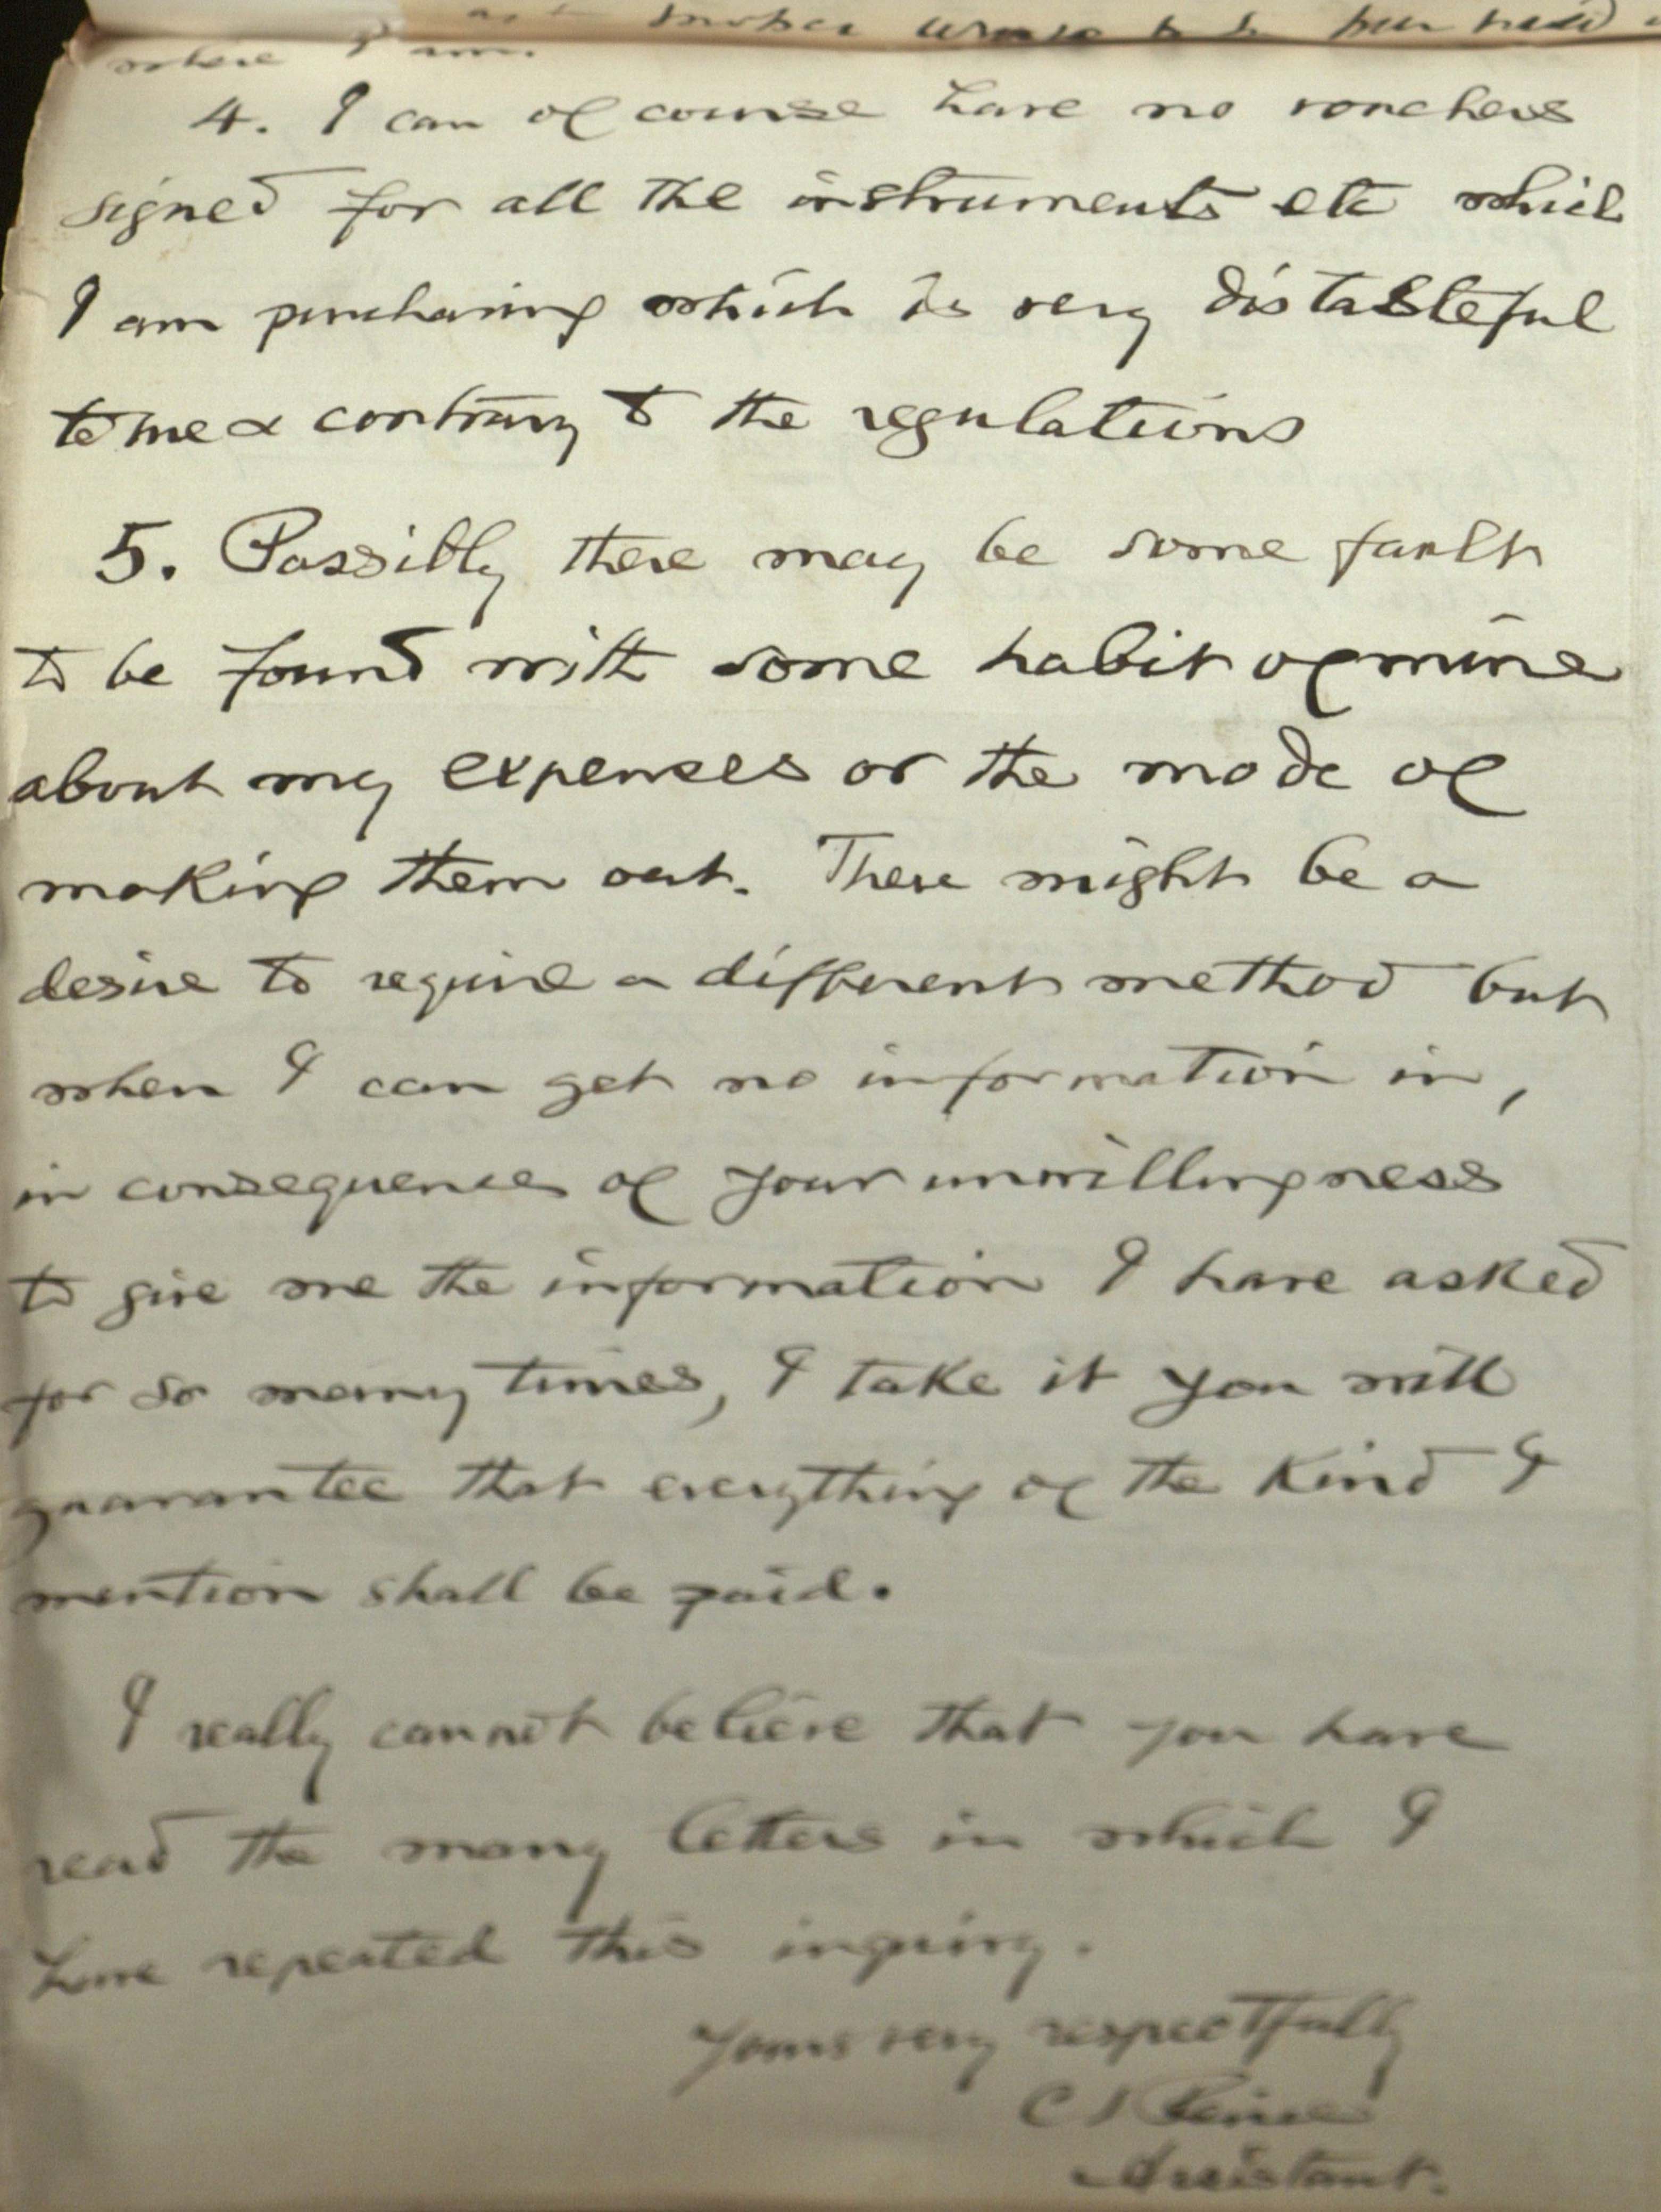 where I am.
4. I can of course have no vouchers
signed for all the instruments etc which
I am purchasing which is very distasteful
to me & contrary to the regulations
5. Possibly there may be some fault
to be found with some habit of mine
about my expenses or the mode of
making them out. There might be a
desire to require a different method but
when I can get no information in,
in consequence of your unwillingness
to give me the information I have asked
for so many times, I take it you will
guarantee that everything of the kind I
mention shall be paid.
I really cannot believe that you have
read the many letters in which I
have repeated this inquiry.
Yours very respectfully
C S Peirce
Assistant.